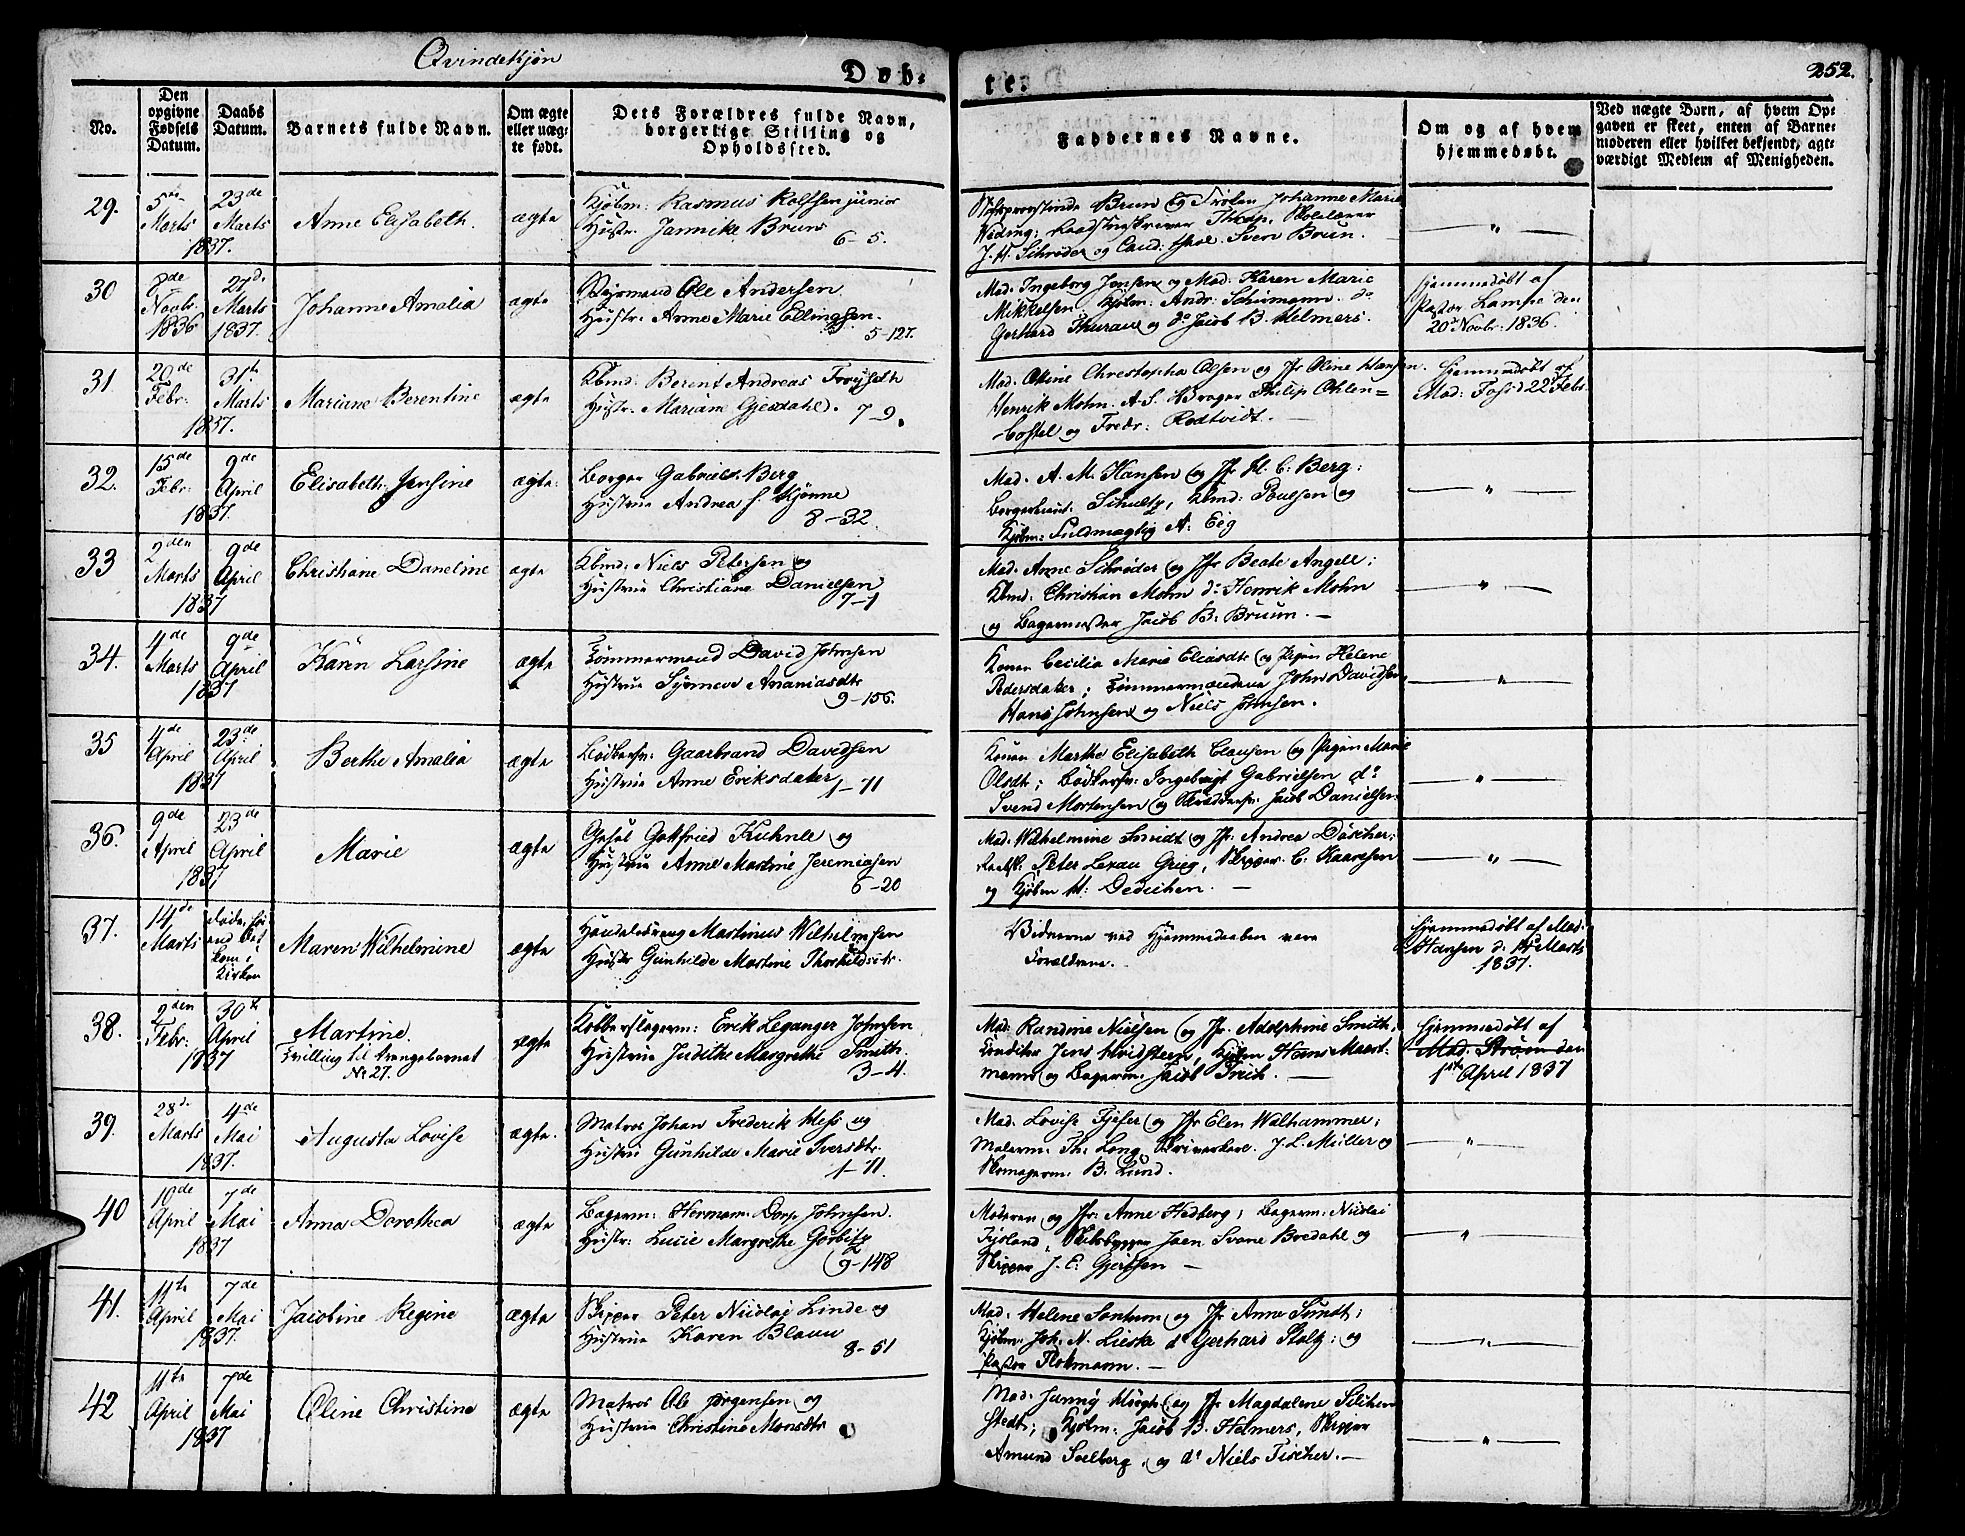 Qvindekjøn
Døb-
te.
252.
No.
Den opgivne Fødsels Datum.
Daabs Datum.
Barnets fulde Navn.
Om ægte eller uæg-
te født.
Dets Forældres fulde Navn,
borgerlige Stilling og
Opholdssted.
Faddernes Navne.
Om og af hvem
hjemmedøbt.
Ved uægte Børn, af hvem Op-
gaven er skeet, enten af Barne-
moderen eller hvilket bekjendt, agt-
værdigt Medlem af Menigheden.
29.
5te Marts
23de Marts
1837.
Anne Elisabeth.
ægte
Kjøbm: Rasmus Rolfsen junior
Hustr. Jannike Bruns
6-5.
Brun og Frøken Johanne Marie
J. H. Schrøder og Cand: Svern Brun.
"
30
8de Novbr. 1836
27de Marts 1837.
Johanne Amalia
ægte
Ole Andersen
Hustr. Anne Marie Ellingsen.
5-127.
Mad. Ingeborg Jensen og Mad. Karen Marie
Mikkelsen. Kjøbm: Andr: Schumann. do
Gerhard Thurau og do Jacob B. Helmers.
Hjemmedøbt af
Pastor Lampe den
20de Novbr: 1836.
31.
20de Febr:
31te Marts
1837.
Mariane Berentine
ægte
Kbmd: Berent Andreas Frøyseth
Hustr. Mariane Gjesdahl.
7-9.
Mad. Christopha Olsen og Jfr Oline Hansen.
Henrik Mohn. A. S. Philip Ohlen=
og Fredr: Rodtvidt.
Hjemmedøbt af
Mad: 22de Febr.
32.
15de Febr:
9de April
1837.
Elisabeth Jensine
ægte
Borger Gabriel Berg
Hustrue Andrea f. Hjønne
8-32.
Mad. A. M. Hansen og Jfr H. C. Berg:
Schultz, Kbmd: Poulsen og
Kjøbm: Fuldmægtig A: Eeg
"
33
2den Marts
9de April
1837
Christiane Daneline
ægte
Kbmd: Niels Petersen og
Hustrue Christiane Danielsen
7-1
Mad. Anne Schrøder og Jfr Beate Angell;
Kbmd: Christian Mohn do Henrik Mohn
og Bagermester Jacob B. Bruun.
"
34.
4de Marts
9de April
1837
Karen Larsine
ægte
Tømmermand David Johnsen
Hustrue Synneve Ananiasdtr
9-156.
Konen Cecilia Marie Eliasdtr og Pigen Helene
Pedersdater; Tømmermændene John Davidsen,
Hans Johnsen og Niels Johnsen.
"
35
4de April
23de April
1837
Berthe Amalia
ægte
Bødkersv: Gaarbrand Davidsen
Hustrue Anne Eriksdater
1-11
Konen Marthe Elisabeth Clausen og Pigen Marie
Olsdtr; Bødkersv: Ingebrigt Gabrielsen do
Svend Mortensen og Skræddersv: Jacob Danielsen
"
36.
9de April
23de April
1837
Marie
ægte
Gottfried Kuhnle og
Hustrue Anne Martine Jeremiasen
6-20
Mad. Wilhelmine Smidt og Jfr: Andrea Döscher;
Peter Lexau Grieg, Skipper C. Kaaresen
og Kjøbm H: Dedichen.
"
37.
14de Marts
Kirken
Maren Wilhelmine
ægte
Martinus Wilhelmsen
Hustr Gunhilde Martine Thorkildsdtr.
Vidnerne ved Hjemmedaaben vare
Forældrene.
Hjemmedøbt af Mad.
Hansen d. Marts
1837.
38.
2den Febr:
30te April
1837
Martine.
Tvilling til Drengebarnet
No 27.
ægte
Kobberslagerm: Erik Leganger Johnsen
Hustrue Judithe Margrethe Smith.
3-4.
Mad: Randine Nielsen og Jfr. Adolphine Smith,
Conditor Jens Hvidsteen, Kjøbm Hans Mart-
mann og Bagerm: Jacob
Hjemmedøbt af
Mad. Strøm den
1ste April 1837
39.
28de Marts
4de Mai
1837.
Augusta Lovise
ægte.
Matros Johan Frederik Hess og
Hustrue Gunhilde Marie Iversdtr
1-11
Mad. Lovise og Jfr Elen Walhammer;
Malerm: Th. Long, Skriverkarl. J. L. Müller og
Skomagerm: B. Lund.
"
40
10de April
7de Mai
1837
Anna Dorothea
ægte
Bagerm: Herman Dorp Johnsen.
Hustr: Lucie Margrethe Görbitz
9-148
Moderen og Jfr: Anne Hedberg; Bagerm: Nicolai
Fjeland, Skibsbygger Joen Svane Bredahl og
Skipper J. E. Gjertsen
"
41.
11te April
7de Mai
1837.
Jacobine Regine
ægte
Skipper Peter Nicolai Linde og
Hustrue Karen Blauw
8-51
Mad: Helene Sontum og Jfr. Anne Sundt;
Kjøbm: Joh. N. do Gerhard Stolz; og
Pastor Flotmann.
"
42
11te April
7de Mai
1837
Oline Christine
ægte
Matros Ole Jørgensen og
Hustrue Christine Monsdtr
Mad. og Jfr Magdalene
Kjøbm: Jacob B. Helmers, Skipper
Amund Solberg og do Niels Fischer.
"